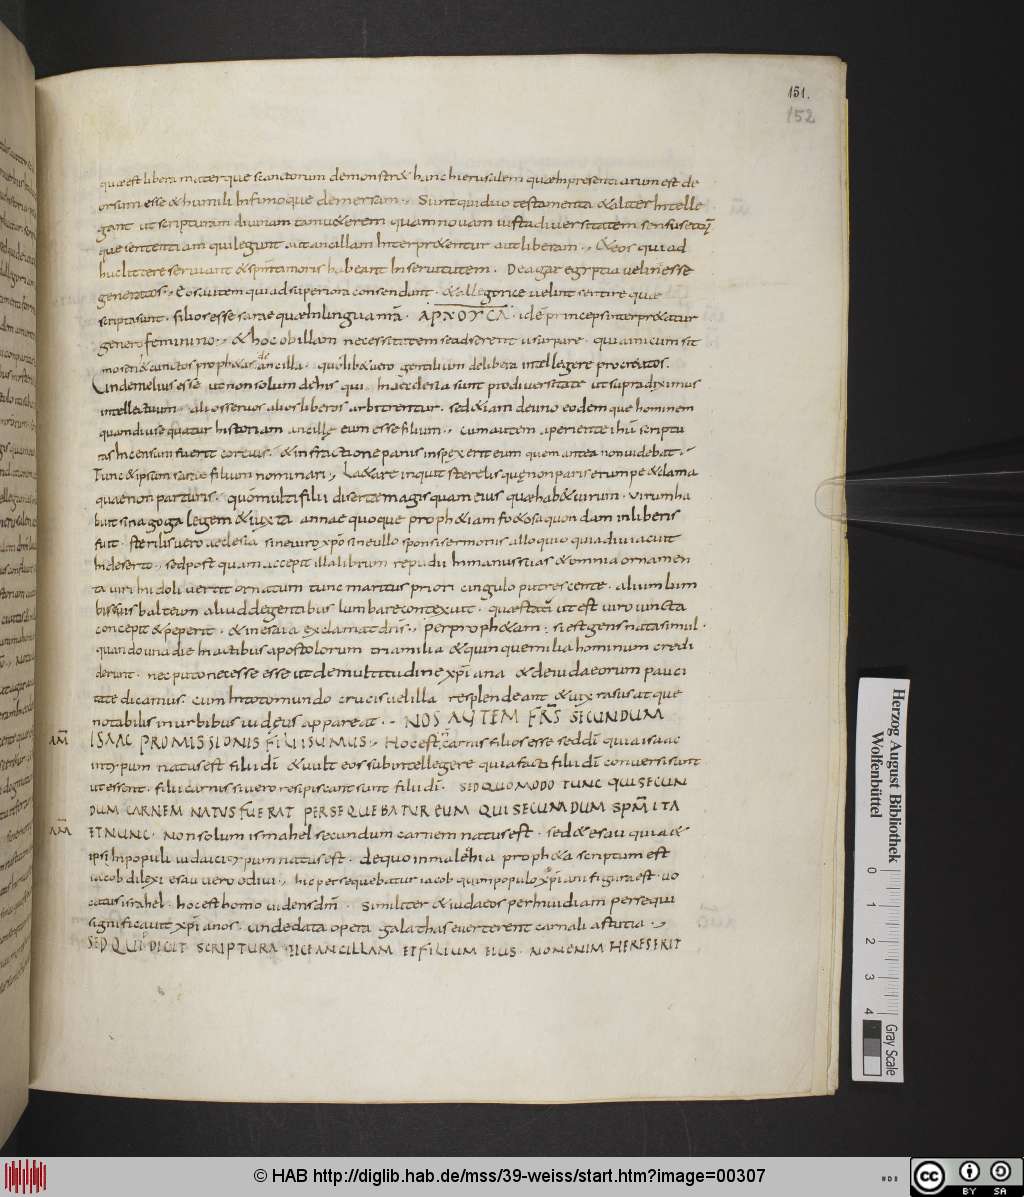 151.
152
quae est libera mater que sanctorum demonstr& hanc hierusalem quae Inpresentiarum est de
orsum esse & humili Infimoque demersam. Sunt qui duo testamenta & aliter Intelle
gant ut scripturam divinam tam u&erem quam novam iuxta diversitatem sensus &
que sententiam qui legunt aut ancillam Interpr&entur aut liberam. & eos qui ad
huc littere serviunt & spm timoris habeant In servitutem. De agar egyptia velint esse
generatos. Eos autem qui ad superiora conscendunt. & allegorice velint sentire quae
scripta sunt. filios esse sarae quae In lingua nra. ΑΡΧΟΥCΑ. ide princeps interpr&atur
genere feminino. & hoc ob illam necessitatem se adserent usurpare. quia Inicum sit
mosen & cunctos proph&as de ancilla. quoslib& vero gentilium de libera intellegere procreatos.
Unde melius esse ut non solum de his qui In aecclesia sunt pro diversitate ut supra diximus
intellectuum. alios servos alios liberos arbitrentur. sed &iam de uno eodem que hominem
quamdiu sequatur historiam ancille eum esse filium. cum autem aperiente ihu scriptu
ras Incensum fuerit cor eius. & in fractione panis inspexerit eum quem antea non videbat.
Tunc & ipsum sarae filium nominari. La&are inquit sterelis que non paris erumpe & clama
quae non parturis. quo multi filii deserte magis quam eius quae hab& virum. virum ha
buit sinagoga legem & iuxta annae quoque proph&iam fo&osa quondam in liberis
fuit. sterilis vero aeclesia sine viro xpo sine ullo sponsi sermonis alloquio quia diu iacuit
In deserto. sed post quam accepit illa librum repudii In manus suas & omnia ornamen
ta viri In idoli vertit ornatum tunc maritus priori cingulo putrescente. alium lum
bis suis balteum aliud de gentibus lumbare contexuit. quae statim ut est viro vincta
concepit & peperit. & in esaia exclamat dns. per proph&am: si est gens nata simul.
quando una die In actibus apostolorum tria milia & quinque milia hominum credi
derunt. nec puto necesse esse ut de multitudine xpiana & de iudaeorum pauci
tate dicamus. cum In toto mundo crucis vexilla resplendeant & vix rarus atque
notabilis in urbibus iudeus appareat. NOS AUTEM FRS SECUNDUM
AM ISAAC PROMISSIONIS FILII SUMUS. Hoc est carnis filios esse sed di quia isaac
in typum natus est filii di & vult eos subintellegere quia facti filii di conversi sunt
ut essent. filii carnis si vero resipiscant sunt filii di. SED QUOMODO TUNC QUI SECUN
DUM CARNEM NATUS FUERAT PERSEQUEBATUR EUM QUI SECUNDUM SPM ITA
AM ET NUNC. non solum ismahel secundum carnem natus est. sed & esau quia &
ipsi In populi iudaici typum natus est. de quo in malechia proph&a scriptum est
iacob dilexi esau vero odivi. hic persequebatur iacob qui in populo xpiani figura est. vo
catus israhel. hoc est homo videns dm. Similiter & iudaeos per Invidiam persequi
significavit xpianos. unde data opera galathas everterent carnali astutia.
SED QUID DICIT SCRIPTURA EICE ANCILLAM ET FILIUM EIUS. NON ENIM HERES ERIT
Herzog August Bibliothek
Wolfenbüttel
0 1 2 3 4
Gray Scale
© HAB http://diglib.hab.de/mss/39-weiss/start.htm?image=00307
cc BY SA